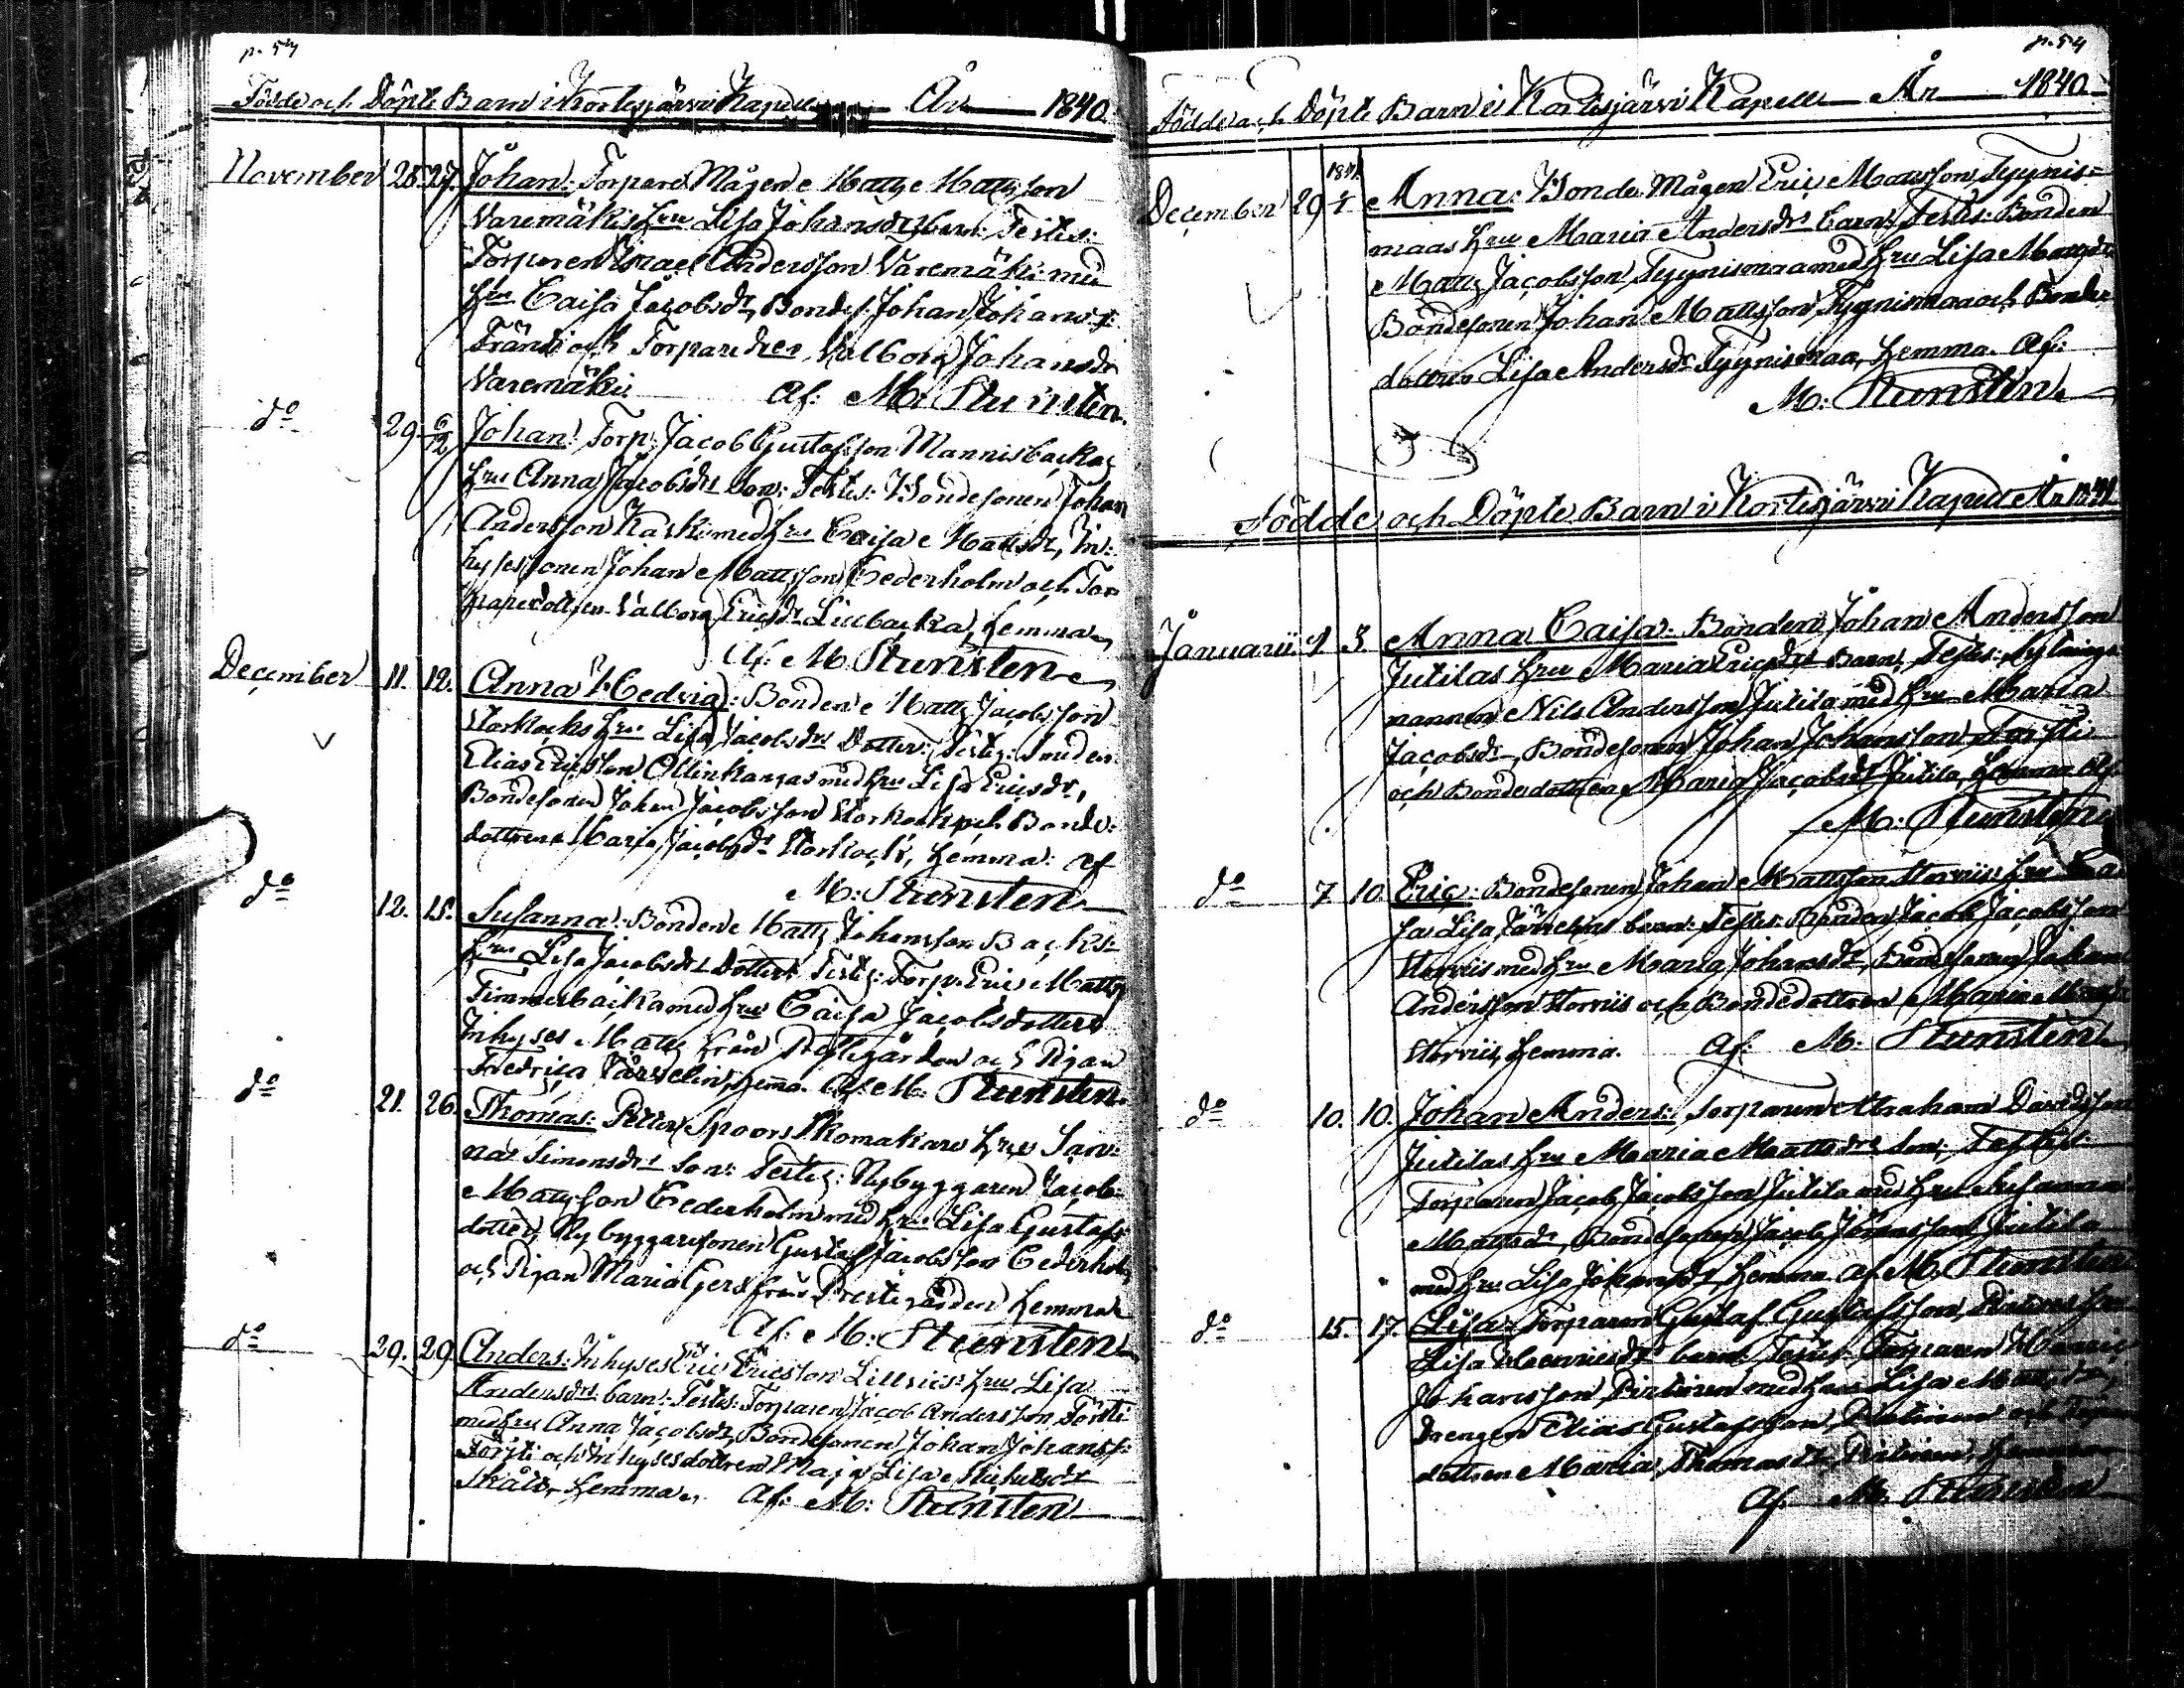 p. 54
Födde och Döpte Barn i Kortesjärvi Kapell År 1840.
November 25. 27. Johan: Torpare Mågen Matts Mattsson
Varemäkis hru Lisa Johansdrs barn: Testes:
Torparen Israel Andersson Varemäki med
hru Caisa Jacobsdr, Bondes: Johan Johans s:
Frändi och Torpare dren Valborg Johansdr
Varemäki. Af: M: Stunsten.
do 29. 6/12 Johan: Torp: Jacob Gustafsson Mannisbackas
hru Anna Jacobsdrs Son: Testes: Bondesonen Johan
Andersson Kaski med hru Caisa Mattsdr, In-
hyses sonen Johan Mattsson Cederholm och Tor
paredottren Valborg Ericsdr Liubacka, hemma
Af: M. Stunsten
December 11. 12. Anna Hedvig: Bonden Matts Jacobsson
Storkocks hru Lisa Jacobsdrs Dotter: Testes: Smeden
Elias Ericsson Ollinkangas med hru Lisa Ericsdr,
Bondesonen Johan Jacobsson Storkock och Bonde-
dottren Maria Jacobsdr Storkock, hemma: af
M: Stunsten
do 12. 15. Susanna: Bonden Matts Johansson Backs
hru Lisa Jacobsdrs Dotter: Testes: Torp. Eric Matts
Timmerbacka med hru Caisa Jacobsdotter
Inhyses Matts från Prestgården och Pigan
Fredrica Järvelin, hemma. Af. M: Stunsten.
do 21. 26. Thomas: Petter Spoors Skomakare hru San-
na Simonsdrs Son: Testes: Nybyggaren Jacob
Mattsson Cederholm med hru Lisa Gustafs
dotter, Nybyggaresonen Gustaf Jacobsson Cederholm
och Pigan Maria Gers från Prestegården hemma
Af: M: Stunsten
do 29. 29. Anders: Inhyses Eric Ericsson Lillviis: hru Lisa
Andersdrs barn: Testes: Torparen Jacob Andersson Försti
med hru Anna Jacobsdr, Bondesonen Johan Johans s:
Försti och Inhysesdottren Maja Lisa Michelsdr
Skåtar, hemma. Af: M: Stunsten
p. 54
Födde och Döpte Barn i Kortisjärvi Kapell År 1840
1841
December 29 1/1 Anna: Bonde Mågen Eric Mattsson Tyynis-
maas hru Maria Andersdrs barn: Testes: Bonden
Matts Jacobsson Tyynismaa med hru Lisa Mattsdr
Bondesonen Johan Mattsson Tyynismaa och Bonde
dottren Lisa Andersdr Tyynismaa, hemma. Af:
M: Stunsten
Födde och Döpte Barn i Kortesjärvi Kapell År 1841.
Januarii 1 3 Anna Caisa: Bonden Johan Andersson
Jutilas hru Maria Ericsdrs Barn, Testes: Sytnings
mannen Nils Andersson Jutila med hru Maria
Jacobsdr, Bondesonen Johan Johansson Försti
och Bondedottren Maria Jacobsdr Jutila, hemma Af:
M: Stunsten
do 7 10. Eric: Bondesonen Johan Mattsson Storviis hru Cai
sa Lisa Järvelins barn: Testes: Bonden Jacob Jacobsson
Storviis med hru Maria Johansdr, Bondesonen Johan
Andersson Storviis och Bondedottren Maria Mattsdr
Storviis, hemma. Af: M: Stunsten
do 10. 10. Johan Anders: Torparen Abraham Davidsson
Jutilas hru Maria Mattsdrs Son: Testes:
Torparen Jacob Jacobsson Jutila med hru Susanna
Mattsdr, Bondesonen Jacob Johansson Jutila
med hru Lisa Johansdr, hemma. Af. M: Stunsten
do 15. 17. Lisa: Torparen Gustaf Gustafsson hru
Lisa Henricsdrs barn: Testes: Torparen Henric
Johansson med hru Lisa Mattsdr,
Drengen Elias Gustafsson och
dottren Maria Thomasdr hemma
Af. M. Stunsten